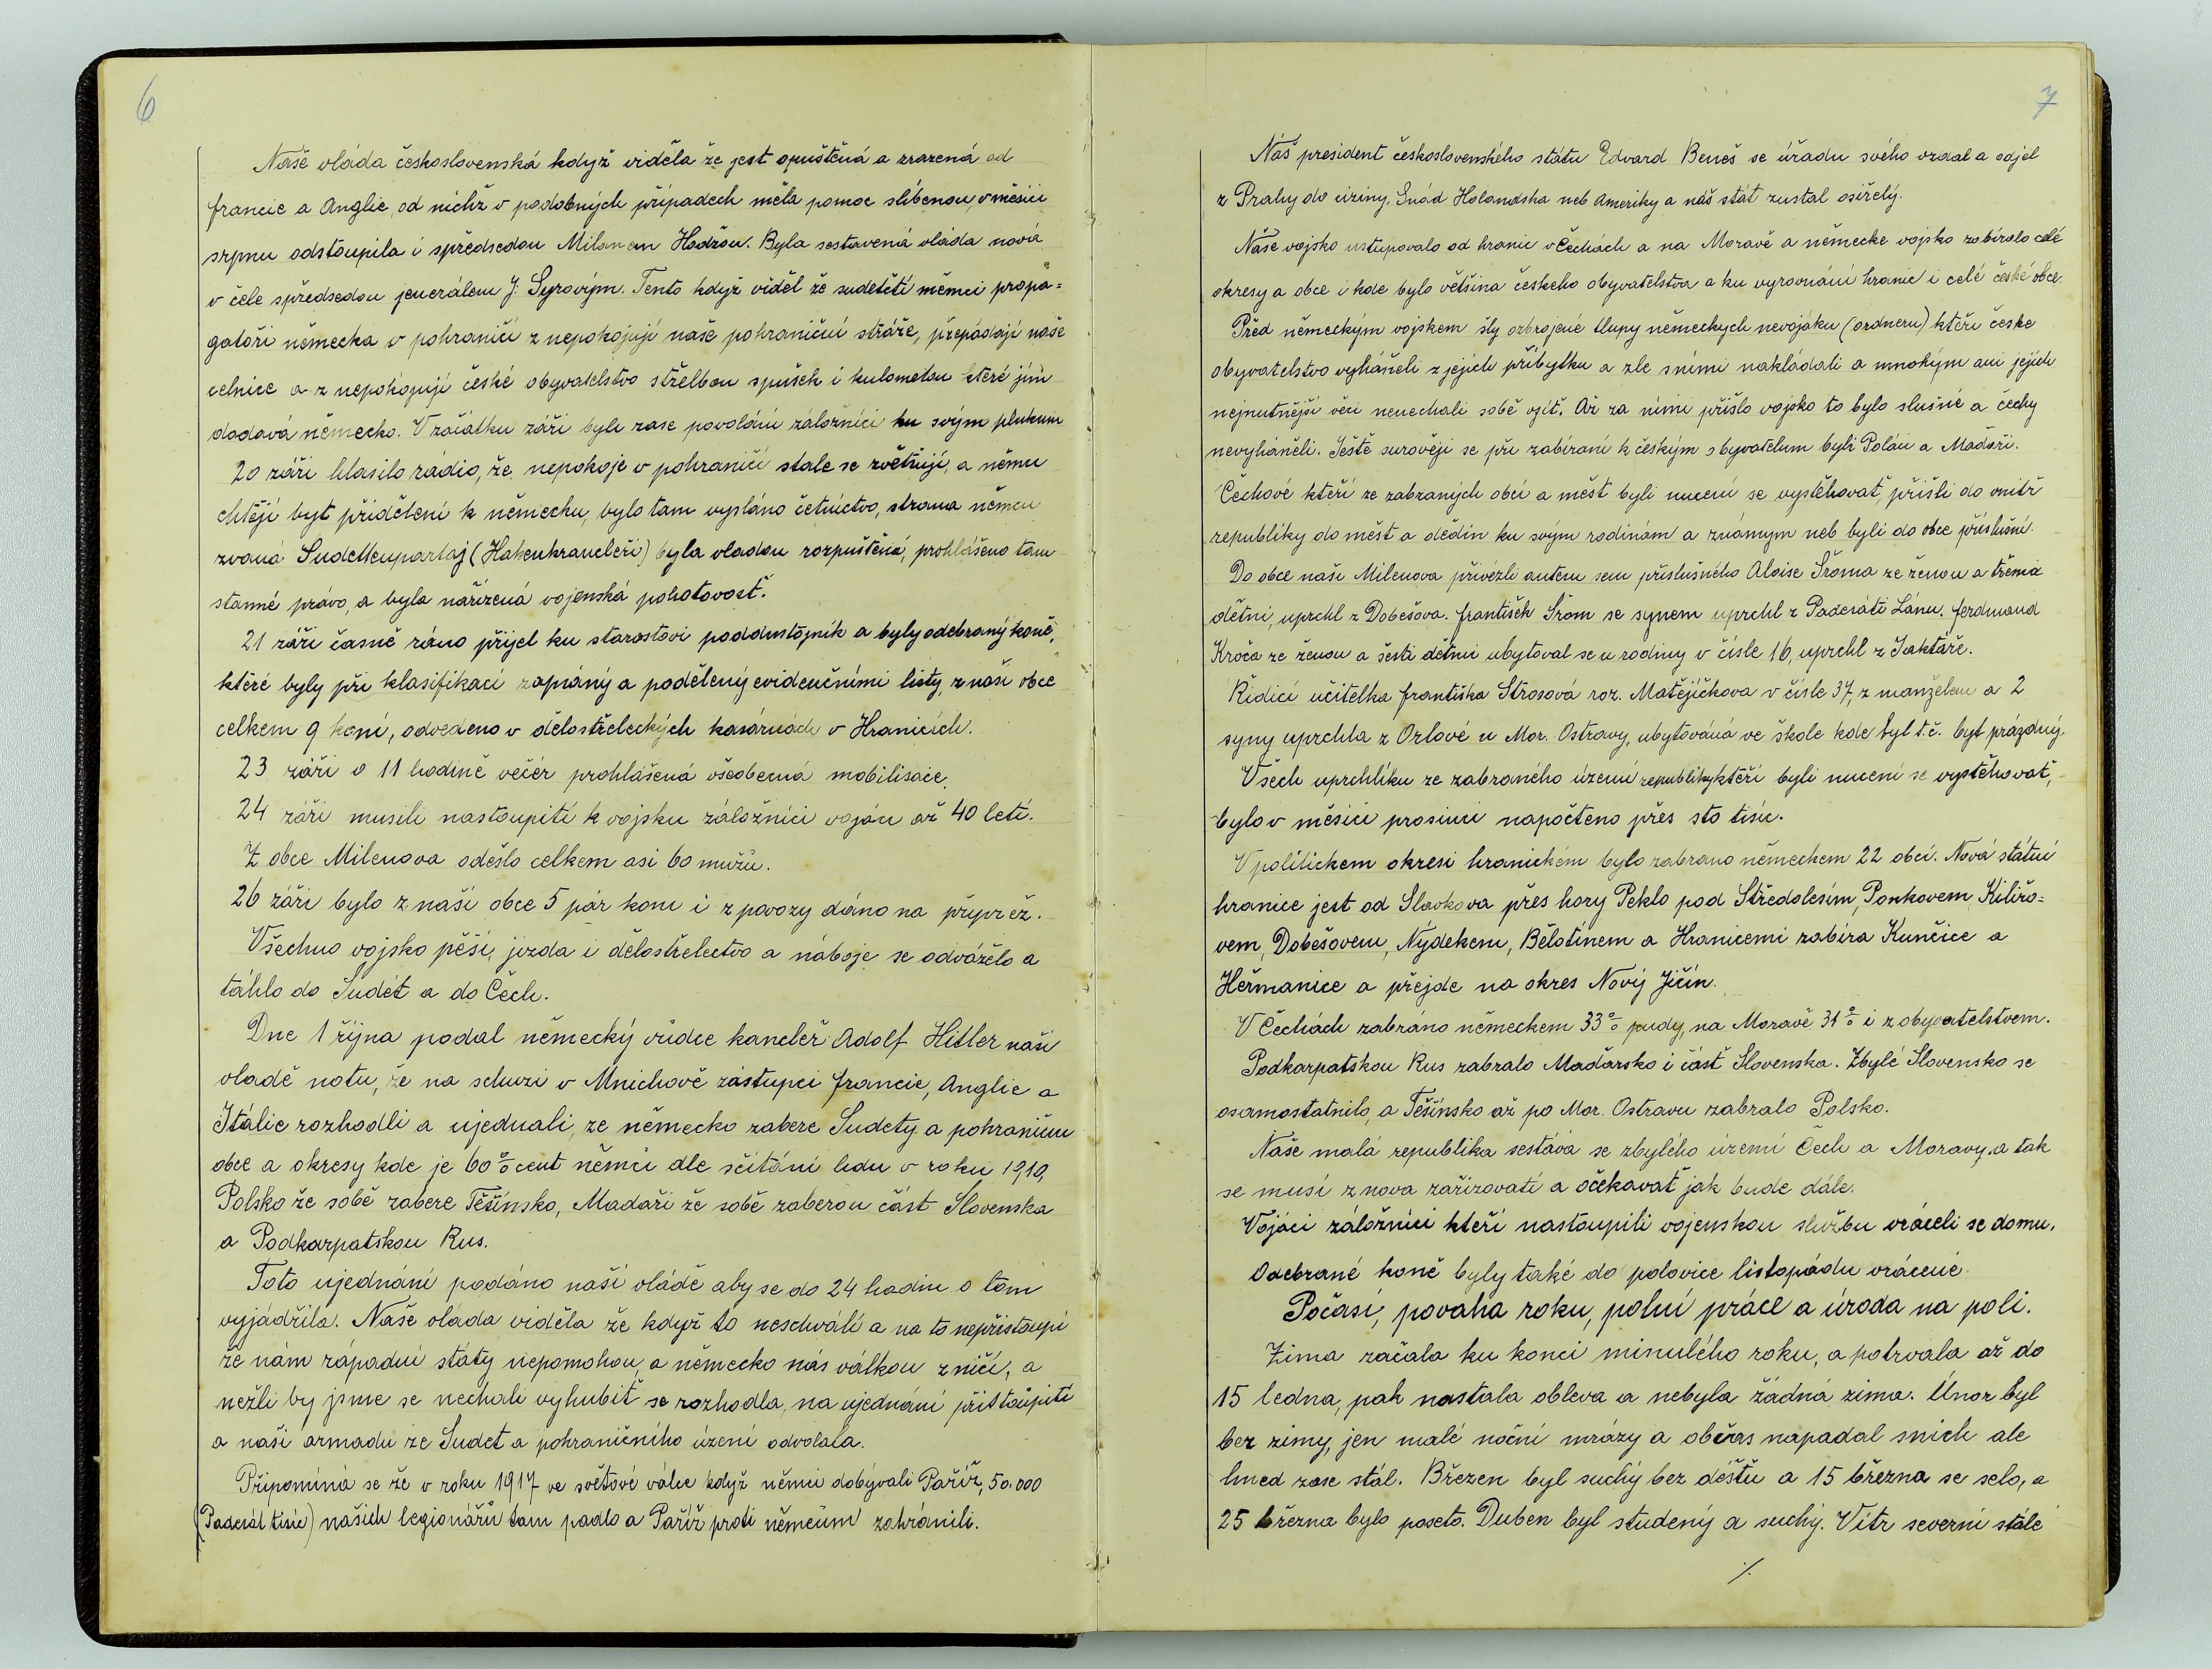 6
Naše vláda československá když viděla že jest opuštěná a zrazená od
francie a Anglie, od nichž v podobných případech měla pomoc slíbenou, v měsíci
srpnu odstoupila i spředsedou Milanem Hodžou. Byla sestavená vláda nová
v čele spředsedou jenerálem J. Syrovým. Tento když viděl že sudetští němci propa=
gatoři německa v pohraničí z nepokojují naše pohraniční stráže, přepadají naše
celnice a z nepokojují české obyvatelstvo střelbou spušek i kulometou které jim
dodavá německo. V začátku září byli zase povoláni záložníci ku svým plukum
20 září hlasilo rádio, že nepokoje v pohraničí stale se zvětšují, a němci
chtějí byt přiděleni k německu, bylo tam vysláno četnictvo, strana němcu
zvaná Sudettenpartaj (Hakenkrancleři) byla vladou rozpuštěná, prohlášeno tam
stanné právo, a byla nařízená vojenská pohotovosť.
21 září časně ráno přijel ku starostovi poddustojník a byly odebraný koně,
které byly při klasifikaci zapsáný a poděleny evidenčními listy, z naší obce
celkem 9 koní, odvedeno v dělostřeleckých kasárnách v Hranicích.
23 září o 11 hodině večér prohlášená všeobecná mobilisace.
24 září musili nastoupiti k vojsku záložníci vojáci až 40 letí.
Z obce Milenova odešlo celkem asi 60 mužů.
26 září bylo z naší obce 5 pár koni i z povozy dáno na přípřež.
Všechno vojsko pěší, jizda i dělostřelectvo a náboje se odváželo a
táhlo do Sudét a do Čech.
Dne 1 října podal německý vůdce kancleř Adolf Hitler naši
vladě notu, že na schuzi v Mnichově zástupci francie, Anglie a
Itálie rozhodli a ujednali, ze německo zabere Sudety a pohraniční
obce a okresy kde je 60 % cent němci dle sčítání lidu v roku 1910,
Polsko že sobě zabere Těšínsko, Madaři že sobě zaberou část Slovenska
a Podkarpatskou Rus.
Toto ujednání podáno naší vládě aby se do 24 hodin o tom
vyjádřila. Naše vláda viděla že když to neschválí a na to nepřistoupí
že nám západní státy nepomohou, a německo nás válkou zničí, a
nežli by jsme se nechali vyhubiť se rozhodla, na ujednání přistoupiti
a naši armadu ze Sudet a pohraničního území odvolala.
Připomíná se že v roku 1917 ve světové válce když němci dobývali Paříž, 50.000
(Padesát tisíc) našich legionářů tam padlo a Paříž proti němcům zahránili.
7
Náš president československého státu Edvard Beneš se úřadu svého vzdal a odjel
z Prahy do ciziny, Snád Holandska neb Ameriky a náš stát zustal osiřelý.
Náše vojsko ustupovalo od hranic v Čechách a na Moravě a německe vojsko zabiralo celé
okresy a obce i kde bylo většina českeho obyvatelstva a ku vyrovnání hranic i celé české obce.
Před německým vojskem šly ozbrojené tlupy německych nevojáku (ordneru) kteři česke
obyvatelstvo vyháněli z jejich příbytku a zle snimi nakládali a mnohým ani jejich
nejnutnější věci nenechali sobě vziť. Až za nimi přišlo vojsko to bylo slušné a čechy
nevyháněli. Ještě surověji se při zabírani k českým obyvatelum byli Poláci a Madaři.
Čechové kteří ze zabraných obci a měst byli nuceni se vystěhovať, přišli do vnitř
republiky do měst a dědin ku svým rodinám a známym neb byli do obce příslušní.
Do obce naši Milenova přivézli autem sem příslušného Aloise Šroma ze ženou a třema
dětmi, uprchl z Dobešova. františek Šrom se synem uprchl z Padesáti Lánu. ferdinand
Kroča ze ženou a šesti dětmi ubytoval se u rodiny v čísle 16, uprchl z Jaktáře.
Řidicí učitelka františka Strosová roz. Matějíčkova v čísle 37, z manželem a 2
syny uprchla z Orlové u Mor. Ostravy, ubytováná ve škole kde byl t.č. byt prázdný.
Všech uprchlíku ze zabraného území republiky kteří byli nuceni se vystěhovať,
bylo v měsíci prosinci napočteno přes sto tisíc.
V politickem okresi hranickém bylo zabrano německem 22 obcí. Nová státní
hranice jest od Slavkova přes hory Peklo pod Středolesím, Ponkovem, Kiliřo=
vem, Dobešovem, Nýdekem, Bělotínem a Hranicemi zabíra Kunčice a
Heřmanice a přejde na okres Nový Jičín.
V Čechách zabráno německem 33 % pudy, na Moravě 31 % i z obyvatelstvem.
Podkarpatskou Rus zabralo Madařsko i část Slovenska. Zbylé Slovensko se
osamostatnilo, a Těšínsko až po Mor. Ostravu zabralo Polsko.
Naše malá republika sestává se zbylého území Čech a Moravy, a tak
se musí z nova zařizovati a očekavať jak bude dále.
Vojáci záložníci kteří nastoupili vojenskou službu vráceli se domu.
Odebrané koně byly také do polovice listopádu vrácené.
Počasí, povaha roku, polní práce a úroda na poli.
Zima začala ku konci minulého roku, a potrvala až do
15 ledna, pak nastala obleva a nebyla žádná zima. Únor byl
bez zimy, jen malé noční mrázy a občas napadal snich ale
hned zase stál. Březen byl suchý bez déště a 15 března se selo, a
25 března bylo poseto. Duben byl studený a suchý. Vítr severní stále
./.